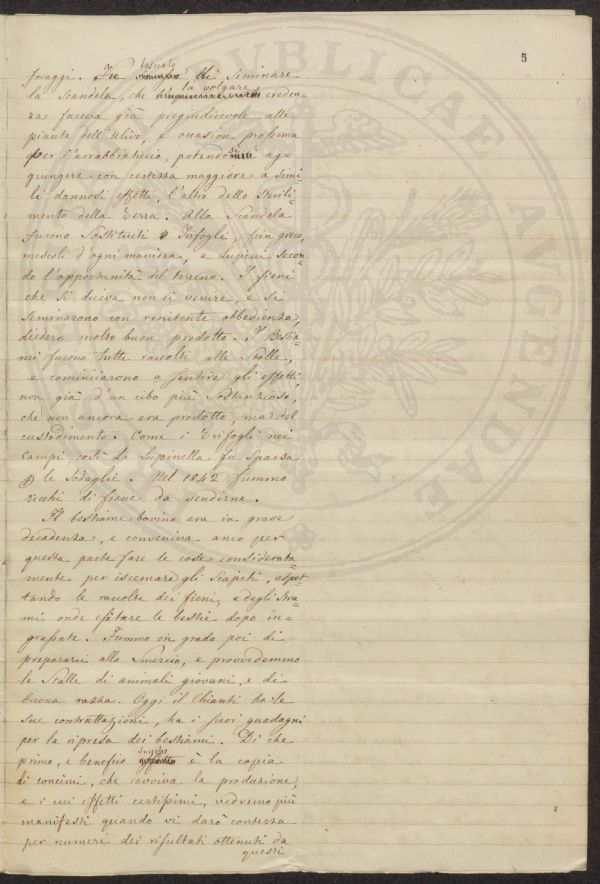 5
foraggi. Fu lasciato di seminare
la Scandela, che la volgare creden-
za faceva già pregiudicevole alle
piante dell'Ulivo, e occasion prossima
per l'arrabbiaticcio, potendo ag-
giungere con certezza maggiore a simi-
li dannosi effetti, l'altro dello sterili-
mento della terra. Alla Scandela
furono Sostituiti Trifogli, fien greco,
mescoli d'ogni maniera, e Lupini secon-
do l'opportunità del terreno. I fieni
che si diceva non ci venire, e si
seminarono con renitente obbedienza,
diedero molto buon prodotto. I Bestia-
mi furono tutti raccolti alle Stalle,
e cominciarono a sentire gli effetti,
non già d'un cibo più Sostanzioso,
che non ancora era prodotto, ma del
custodimento. Come i Trifogli nei
campi così La Lupinella fu Sparsa
p le Sodaglie. Nel 1842 fummo
ricchi di fieno da venderne.
Il bestiame bovino era in grave
decadenza, e conveniva anco per
questa parte fare le cose considerata-
mente per iscemare gli scapiti, aspet-
tando le raccolte dei fieni, e degli stra-
mi onde esitare le bestie dopo in-
grassate. Fummo in grado poi di
prepararci allo Smercio, e provvedemmo
le Stalle di animali giovani, e di
buona razza. Oggi il Chianti ha le
sue contrattazioni, ha i suoi guadagni
per la ripresa dei bestiami. Di che
primo, e benefico successo è la copia
di concimi, che ravviva la produzione,
e i cui effetti certissimi, vedremo più
manifesti quando vi darò contezza
per numeri dei risultati ottenuti da
questi